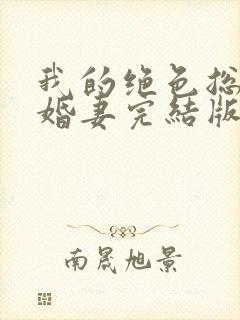 我的绝色总
婚妻完结版
南晟旭景